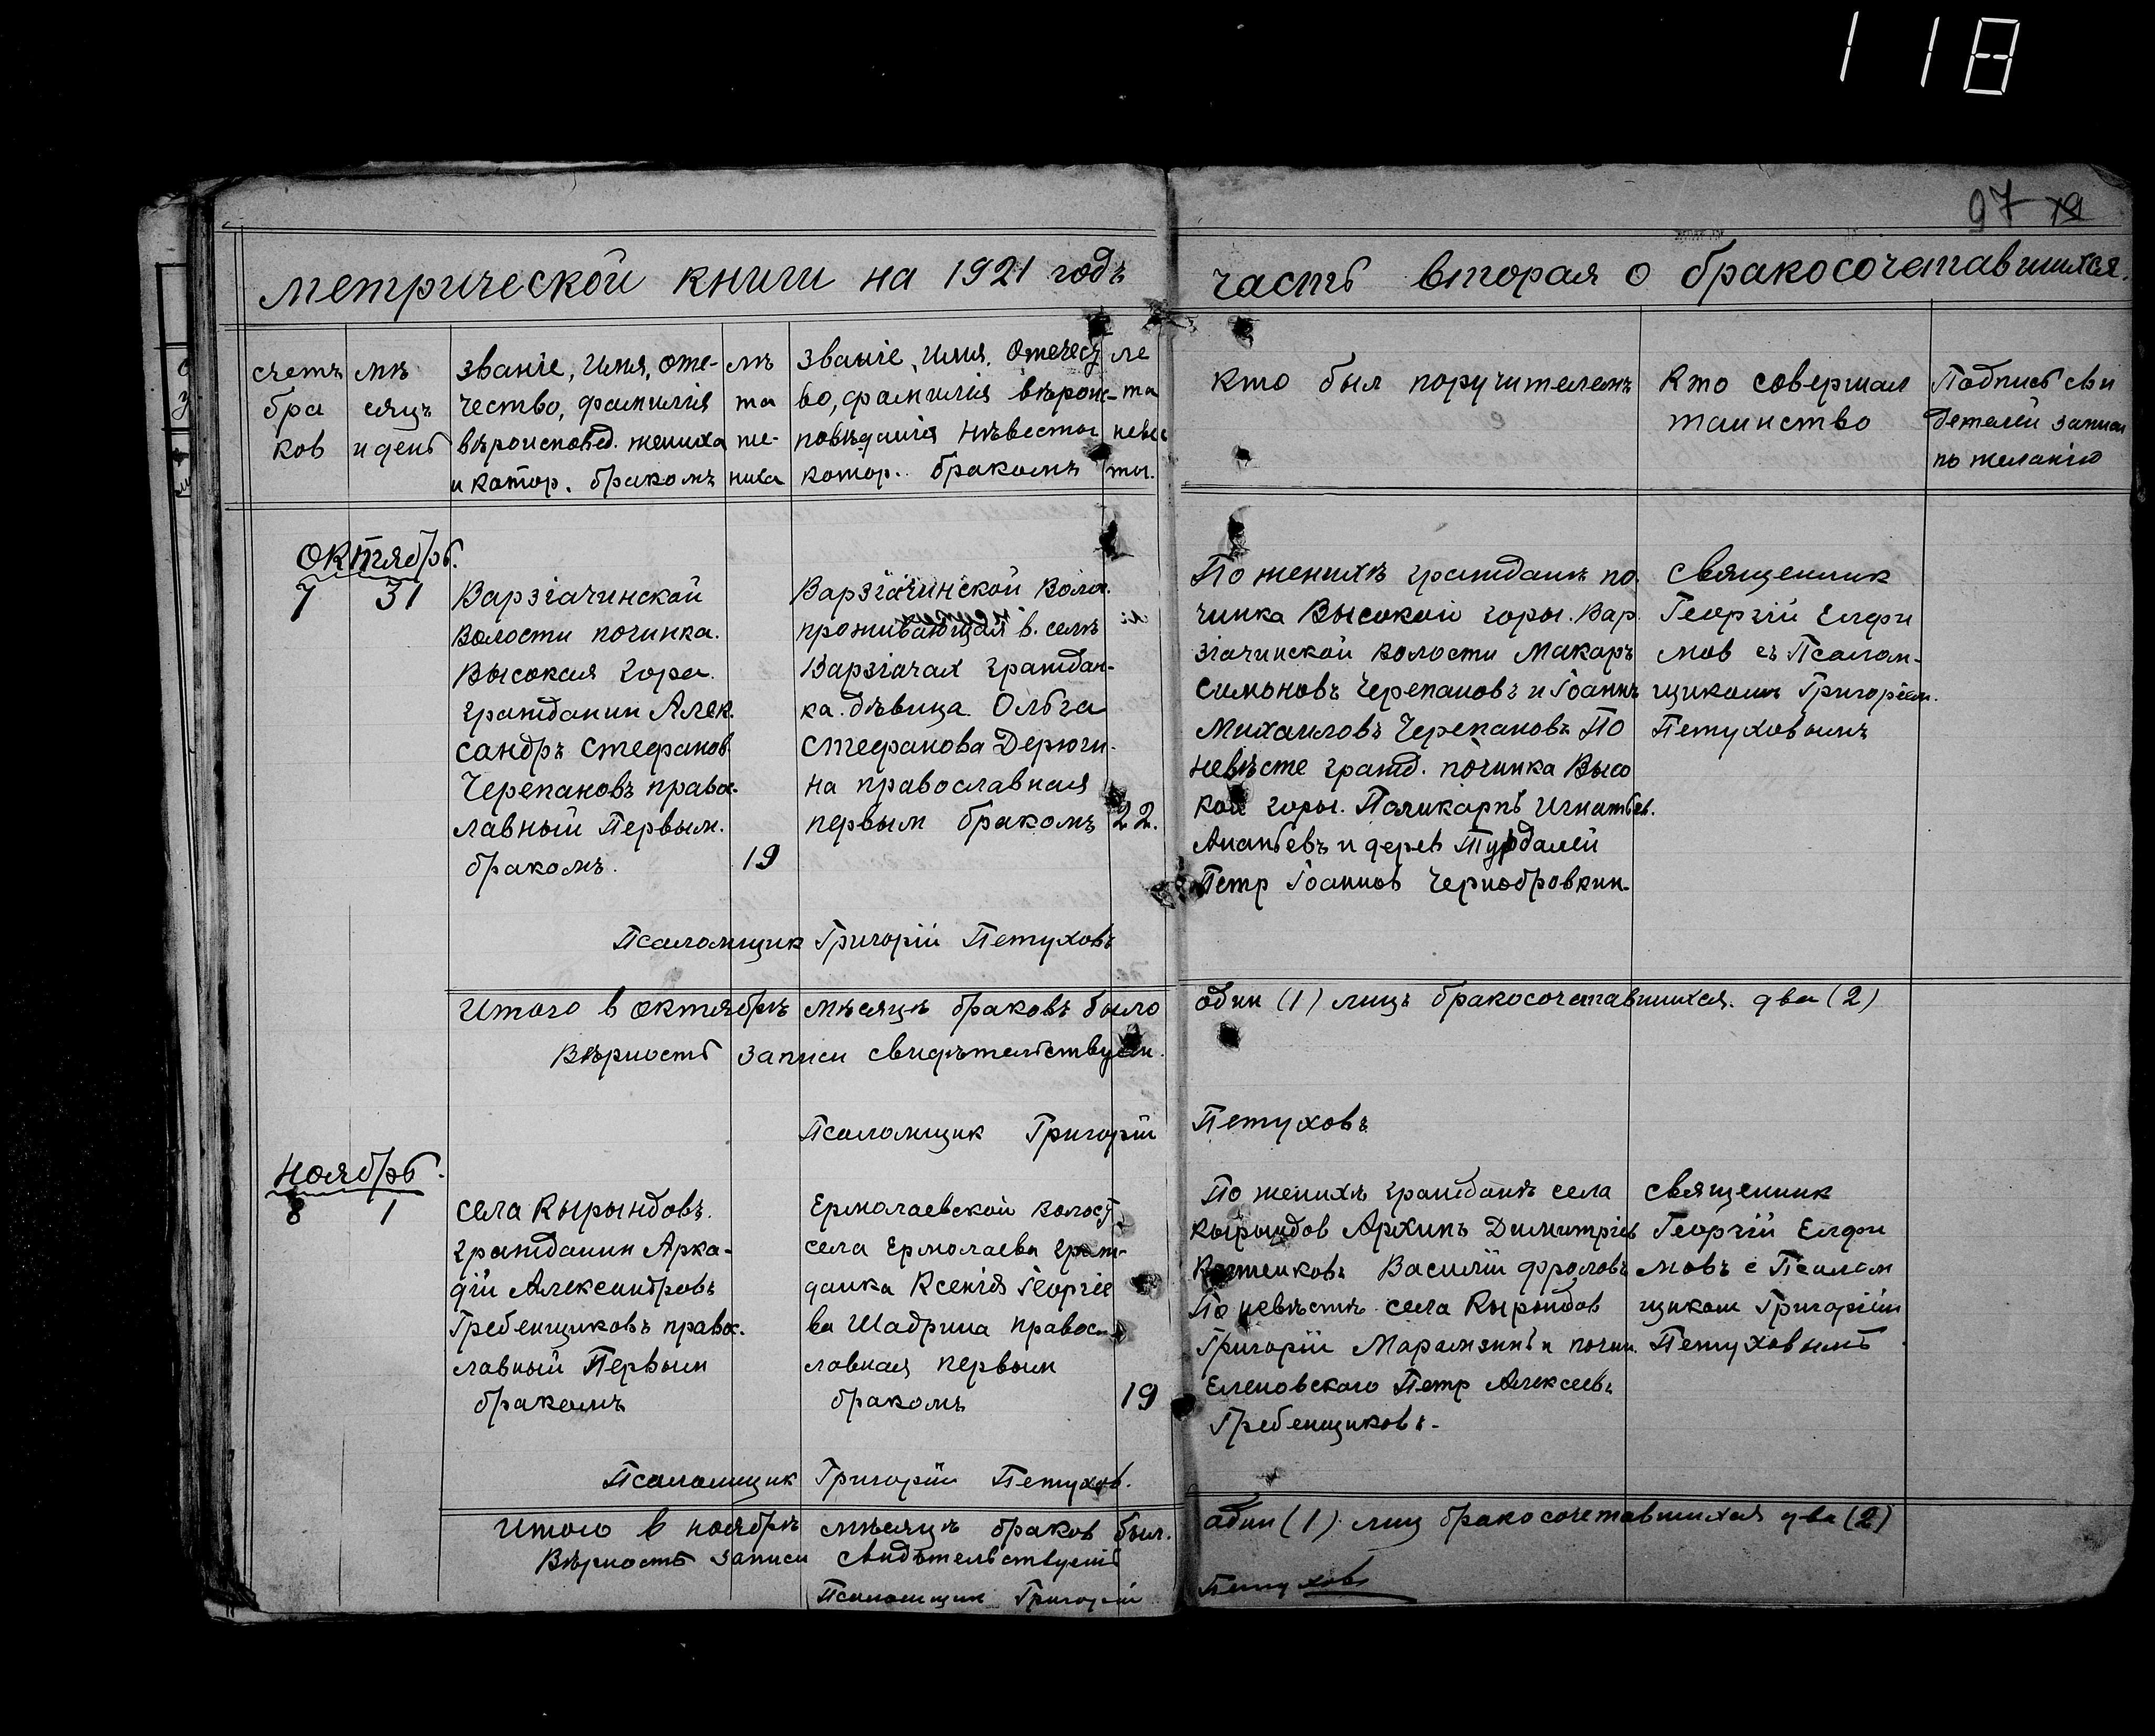 118
97
метрической книги на 1921 годъ
часть вторая о бракосочетавшихся.
счетъ
бра
ков
мѣ
сяцъ
и день
званіе, имя, оте-
чество, фамилія
вѣроисповѣд. жениха
и котор. бракомъ
лѣ
та
же-
ниха
званіе, имя, Отечест
во, фамилія вѣроис-
повѣданія невѣсты
котор. бракомъ
ле
та
невес
ты.
кто был поручителемъ
Кто совершал
таинство
Подпись сви
детелей записи
по желанію
октябрь.
7 31
Варзіачинской
волости починка.
Высокая гора.
гражданин Алек.
сандръ Стефанов
Черепановъ правос.
лавный Первым.
бракомъ.
19
Варзіачинской Волос.
проживающая в. селѣ
Варзіачах граждан-
ка. дѣвица. Ольга
Стефанова Дерюги.
на православная
первым бракомъ
22.
По женихѣ граждане по.
чинка Высокой горы. Вар.
зіачинской волости Макаръ
Симоновъ Черепановъ и Іоаннъ
Михаиловъ Черепановъ По
невѣсте гражд. починка Высо
кой горы. Поликарпъ Игнатьев.
Ананьевъ и дерев Турдалей
Петр Іоаннов Чернобровкин.
священник
Георгій Елфи
мов съ Псалом-
щиком Григоріем.
Петуховымъ
Псаломщик Григорій Петуховъ
Итого в октябрѣ мѣсяцѣ браковъ было
один (1) лицъ бракосочетавшихся. два (2)
Вѣрность записи свидѣтельствуем.
Псаломщик Григорій
Петуховъ
ноябрь.
8 1
села Кырындовъ.
гражданин Арка-
дій Александровъ
Гребенщиковъ правос.
лавный Первым
бракомъ
Ермолаевской волост
села Ермолаева граж-
данка Ксенія Георгіе
ва Шадрина правос
лавная первым
бракомъ
19
По женихѣ граждане села
Кырындов Архипъ Димитріев
Василій Фроловъ
По невѣстѣ села Кырындов
Григорій Марамзинъ и почин.
Еленовского Петр Алексеевъ
Гребенщиковъ.
священник
Георгій Елфи
мовъ с Псалом
щиком Григоріем
Петуховымъ
Псаломщик Григорій Петухов.
Итого в ноябрѣ мѣсяцѣ браков был.
один (1) лиц бракосочетавшихся два (2)
Вѣрность записи свидѣтельствуетъ
Псаломщик Григорій
Петухов